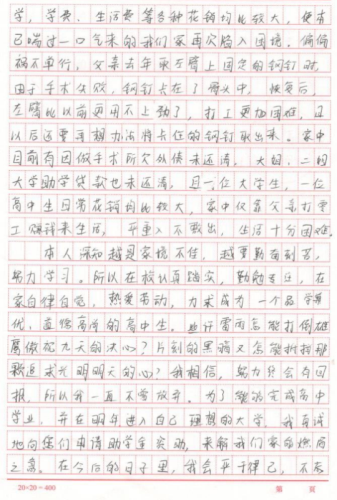 学，学费、生活费等各种花销均比较大，使本
已喘过一口气来的我们家再次陷入困境。偏偏
祸不单行，父亲去年取左臂上固定的钢钉时，
由于手术失败，钢钉卡在了骨头中，恢复后，
左臂比以前更用不上劲了，打工更加困难，且
以后还要寻想办法将卡住的钢钉取出来。家中
目前有因做手术所欠外债未还清，大姐、二姐
大学助学贷款也未还清，且一位大学生，一位
高中生日常花销均比较大，家中仅靠父亲打零
工赚钱来生活，严重入不敷出，生活十分困难。
本人深知越是家境不佳，越要勤奋刻苦，
努力学习。所以在校认真踏实，勤勉专注，在
家自律自强，热爱劳动，力求成为一个品学兼
优、直懂高尚的高中生。些许雷雨怎能打倒雄
鹰傲龙九天的决心？片刻的黑暗又怎能树挡那
颗追求光明明天的心？我相信，努力终会有回
报，所以我一直不曾放弃。为了能够完成高中
学业，并在明年进入自己理想的大学，我真诚
地向您们申请助学生资助，来解我们家的燃眉
之急。在今后的日子里，我会严于律己，不忘
20×20=400
第 页